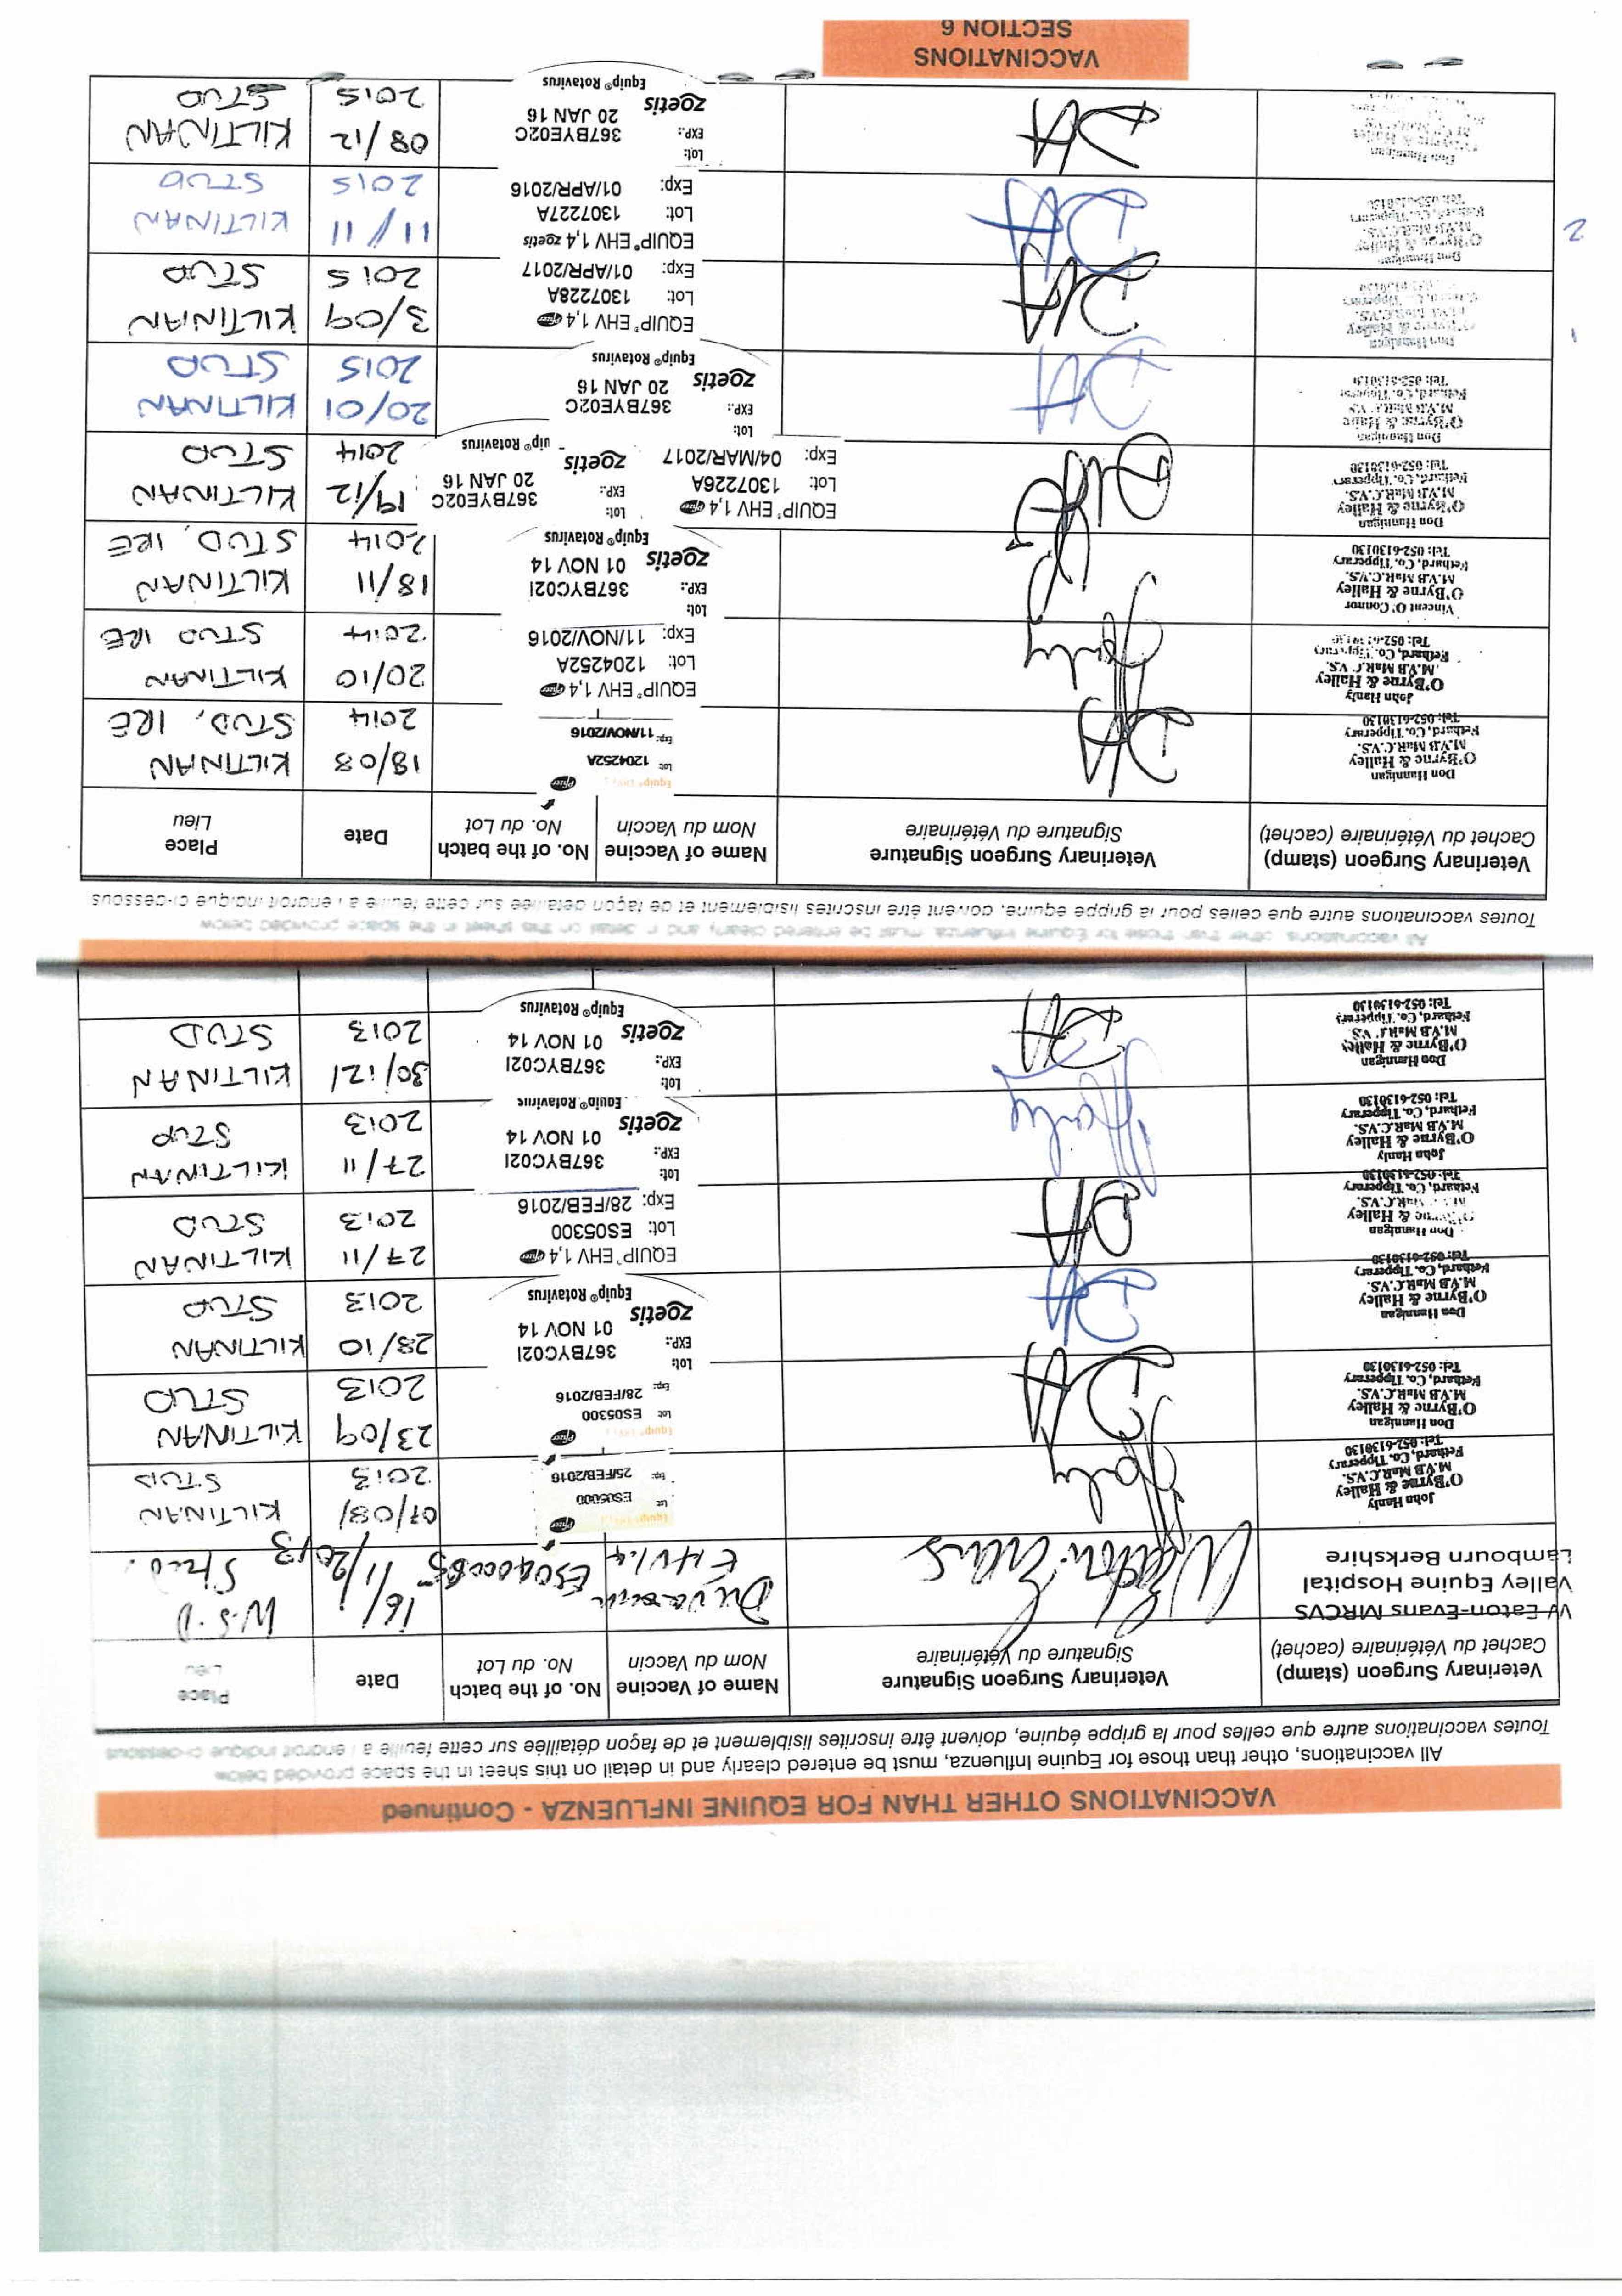 VACCINATIONS OTHER THAN FOR EQUINE INFLUENZA - Continued
All vaccinations, other than those for Equine Influenza, must be entered clearly and in detail on this sheet in the space provided below
Toutes vaccinations autre que celles pour la grippe équine, doivent être inscrites lisiblement et de façon détaillée sur cette feuille a l endroit indique ci-dessous
Veterinary Surgeon (stamp)
Cachet du Vétérinaire (cachet)
Veterinary Surgeon Signature
Signature du Vétérinaire
Name of Vaccine
Nom du Vaccin
No. of the batch
No. du Lot
Date
Place
Lieu
W Eaton-Evans MRCVS
Valley Equine Hospital
Lambourn Berkshire
Duvaxin
EHV1.4
16/11/2013
W.S.D
Stud.
John Hanly
O'Byrne & Halley
M.V.B MaR.C.V.S.
Fethard, Co. Tipperary
Tel: 052-6130130
Lot ES05000
Exp: 25/FEB/2016
07/08/
2013
KILTINAN
STUD
Don Hannigan
O'Byrne & Halley
M.V.B MaR.C.V.S.
Fethard, Co. Tipperary
Tel: 052-6130130
Lot ES05300
Exp: 28/FEB/2016
23/09
2013
KILTINAN
STUD
Don Hannigan
O'Byrne & Halley
M.V.B MaR.C.V.S.
Fethard, Co. Tipperary
Tel: 052-6130130
Lot:
EXP.:
367BYC02I
01 NOV 14
zoetis
Equip® Rotavirus
28/10
2013
KILTINAN
STUD
Don Hannigan
O'Byrne & Halley
MaR.C.V.S.
Fethard, Co. Tipperary
Tel: 052-6130130
EQUIP® EHV 1,4 Pfizer
Lot: ES05300
Exp: 28/FEB/2016
27/11
2013
KILTINAN
STUD
John Hanly
O'Byrne & Halley
M.V.B MaR.C.V.S.
Fethard, Co. Tipperary
Tel: 052-6130130
Lot:
EXP.:
367BYC02I
01 NOV 14
zoetis
Equip® Rotavirus
27/11
2013
KILTINAN
STUD
Don Hannigan
O'Byrne & Halley
M.V.B MaR.C.V.S.
Fethard, Co. Tipperary
Tel: 052-6130130
Lot:
EXP.:
367BYC02I
01 NOV 14
zoetis
Equip® Rotavirus
30/12/
2013
KILTINAN
STUD
All vaccinations, other than those for Equine Influenza, must be entered clearly and in detail on this sheet in the space provided below
Toutes vaccinations autre que celles pour la grippe équine, doivent être inscrites lisiblement et de façon détaillée sur cette feuille a l endroit indique ci-dessous
Veterinary Surgeon (stamp)
Cachet du Vétérinaire (cachet)
Veterinary Surgeon Signature
Signature du Vétérinaire
Name of Vaccine
Nom du Vaccin
No. of the batch
No. du Lot
Date
Place
Lieu
Don Hannigan
O'Byrne & Halley
M.V.B MaR.C.V.S.
Fethard, Co. Tipperary
Tel: 052-6130130
Lot 1204252A
Exp: 11/NOV/2016
18/08
2014
KILTINAN
STUD, IRE
John Hanly
O'Byrne & Halley
M.V.B MaR.C.V.S.
Fethard, Co. Tipperary
EQUIP® EHV 1,4 Pfizer
Lot: 1204252A
Exp: 11/NOV/2016
20/10
2014
KILTINAN
STUD IRE
Vincent O'Connor
O'Byrne & Halley
M.V.B MaR.C.V.S.
Fethard, Co. Tipperary
Tel: 052-6130130
Lot:
EXP.:
367BYC02I
01 NOV 14
zoetis
Equip® Rotavirus
18/11
2014
KILTINAN
STUD, IRE
Don Hannigan
O'Byrne & Halley
M.V.B MaR.C.V.S.
Fethard, Co. Tipperary
Tel: 052-6130130
EQUIP® EHV 1,4 Pfizer
Lot: 1307226A
Exp: 04/MAR/2017
Lot:
EXP.:
367BYE02C
20 JAN 16
zoetis
uip® Rotavirus
19/12
2014
KILTINAN
STUD
Don Hannigan
Tel: 052-6130130
Lot:
EXP.:
367BYE02C
20 JAN 16
zoetis
Equip® Rotavirus
20/01
2015
KILTINAN
STUD
1
EQUIP® EHV 1,4 Pfizer
Lot: 1307228A
Exp: 01/APR/2017
3/09
2015
KILTINAN
STUD
2
Don Hannigan
O'Byrne & Halley
EQUIP® EHV 1,4 zoetis
Lot: 1307227A
Exp: 01/APR/2016
11/11
2015
KILTINAN
STUD
Don Hannigan
Lot:
EXP.:
367BYE02C
20 JAN 16
zoetis
Equip® Rotavirus
08/12
2015
KILTINAN
STUD
VACCINATIONS
SECTION 6